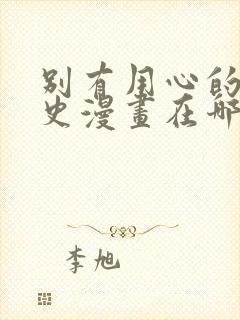 别有用心的
史漫畫在哪
李旭